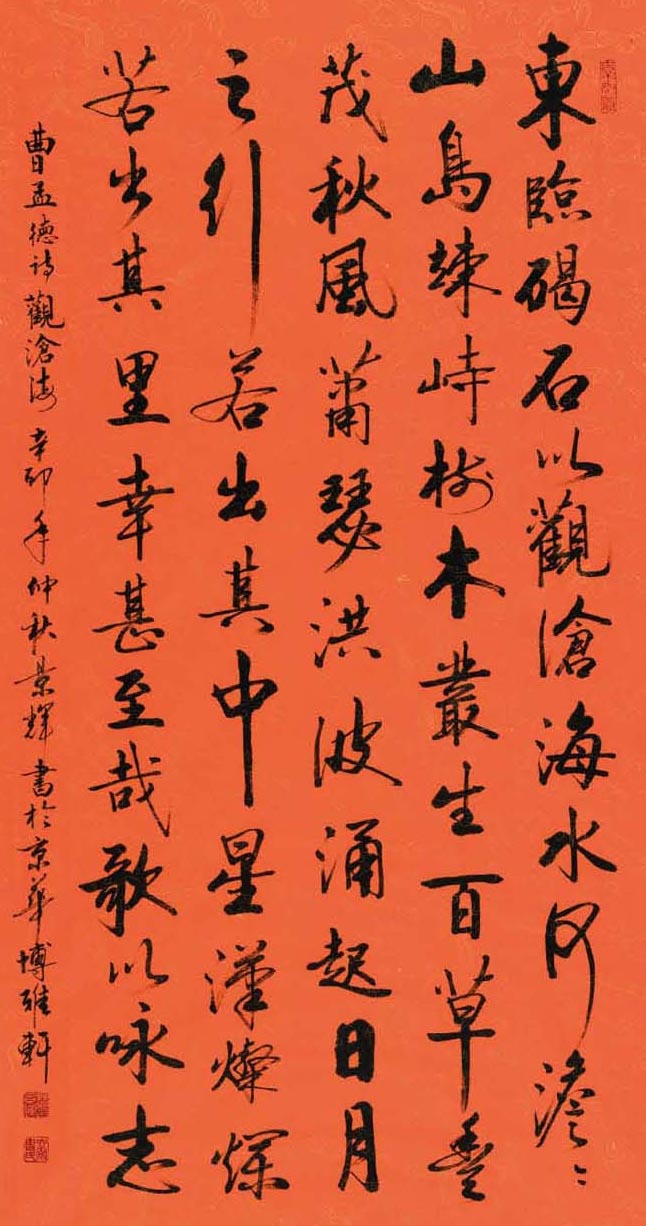 東臨碣石以觀滄海水何澹〻
山島竦峙樹木叢生百草豐
茂秋風蕭瑟洪波涌起日月
之行若出其中星漢燦爛
若出其里幸甚至哉歌以咏志
曹孟德詩觀滄海辛卯年仲秋景輝書於京華博雅軒